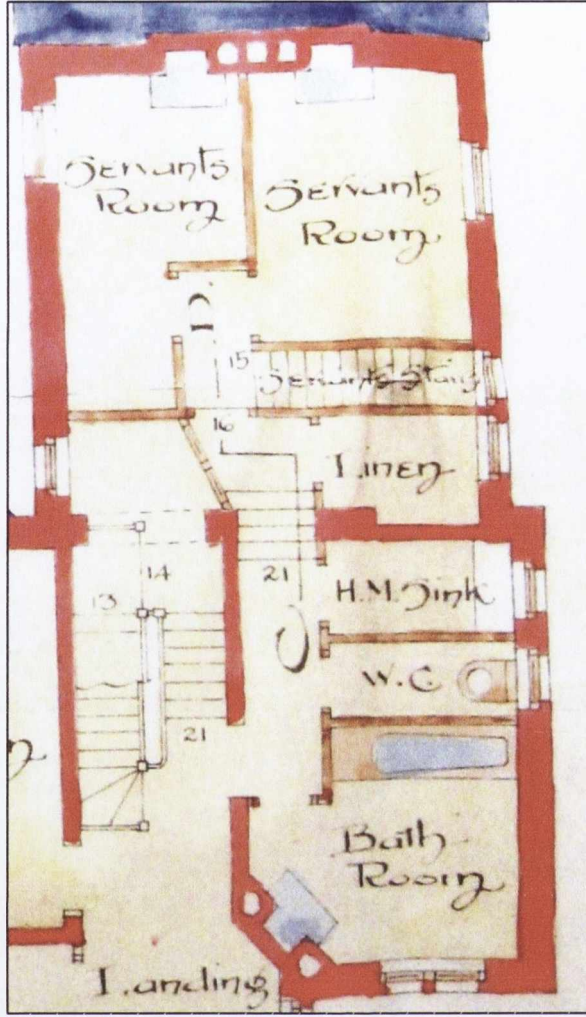 Servants
Room
Servants
Room
15
Servants Stairs
16
Linen
14
13
21
H.M. Sink
W.C
21
Bath
Room
Landing